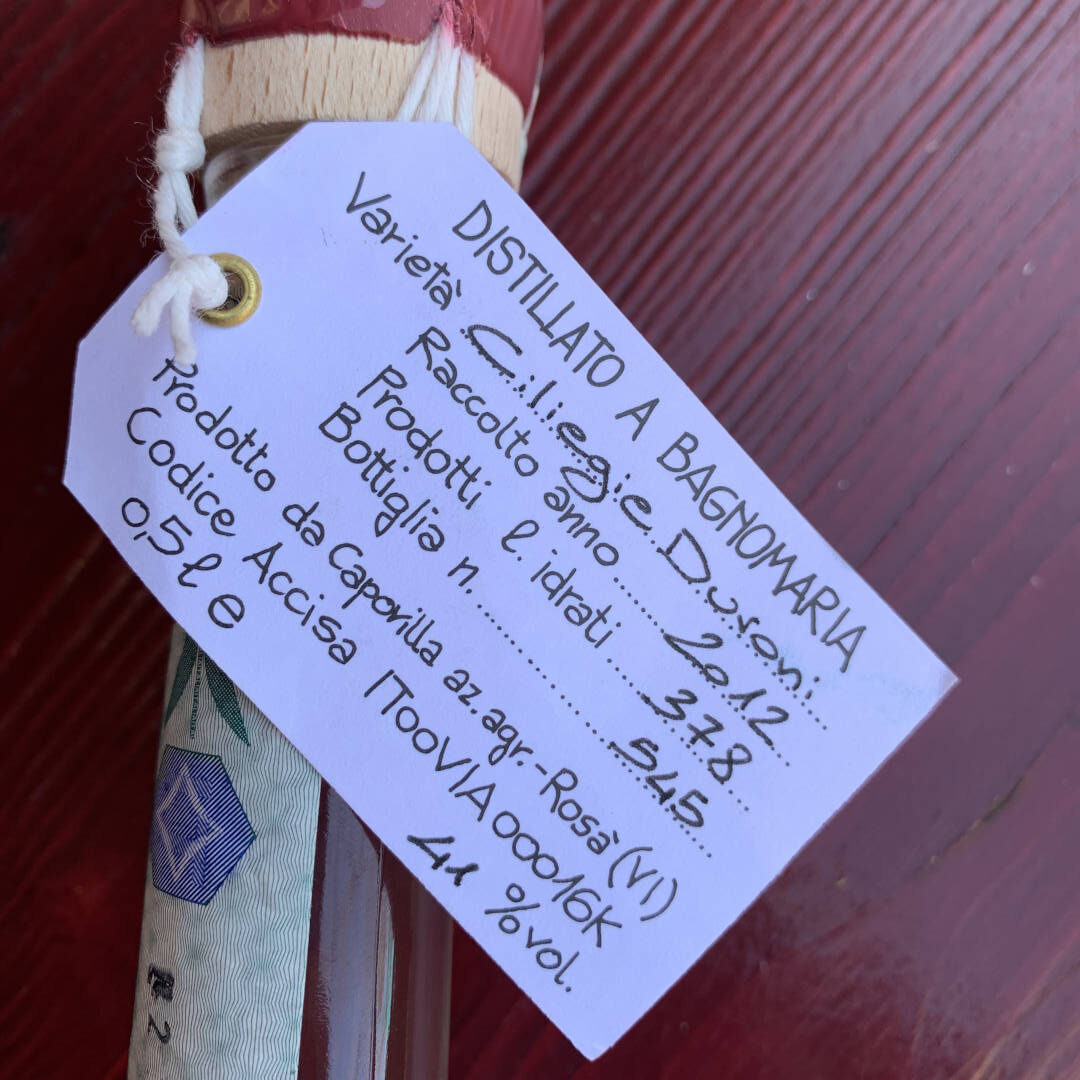 DISTILLATO A BAGNOMARIA
Varietà Ciliegie Duroni
Raccolto anno 2012
Prodotti l. idrati 378
Bottiglia n. 545
Prodotto da Capovilla az. agr. - Rosà (VI)
Codice Accisa IT00VIA00016K
0,5 l e 41 % vol.